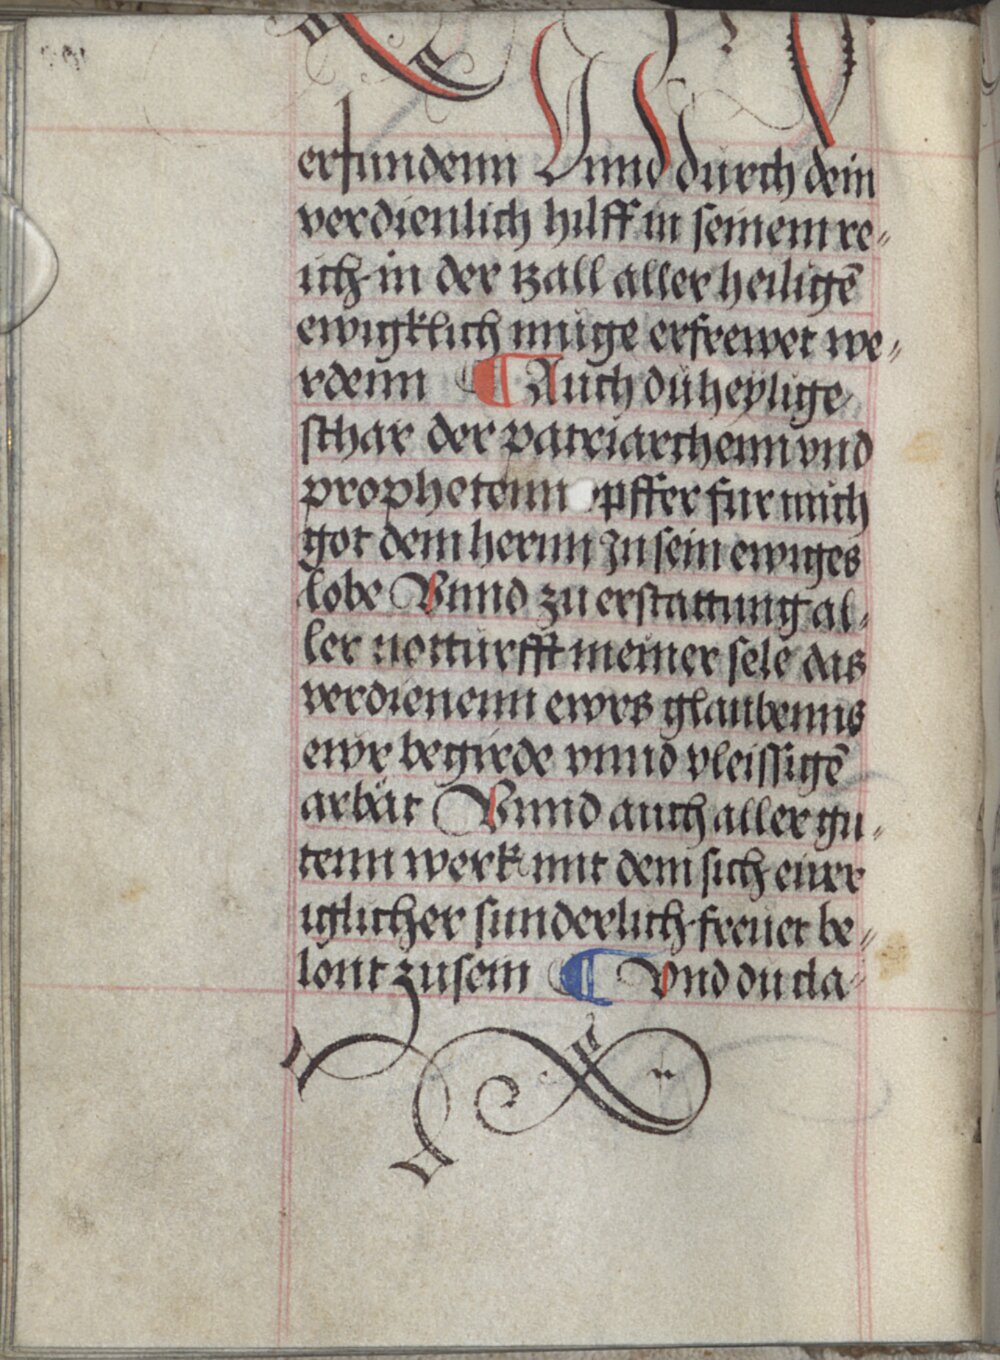 erfundenn Vnnd durch dein
verdienlich hilff in seinem re„
ich in der tzall aller heiligē
ewigklich muge erfrewet we„
rdenn ¶ Auch du heylige
schar der patriarchenn vnd
prophetenn opffer fur mich
got dem hernn zu sein ewiges
lobe Vnnd zu erstattung al„
ler notturfft meiner sele das
verdienenn ewrs glaubenns
ewr begirde vnnd vleissigē
arbät Vnnd auch aller gu„
tenn werk mit dem sich eurr
iglicher sunderlich freuet be„
lont zu sein ¶ Vnd du cla„